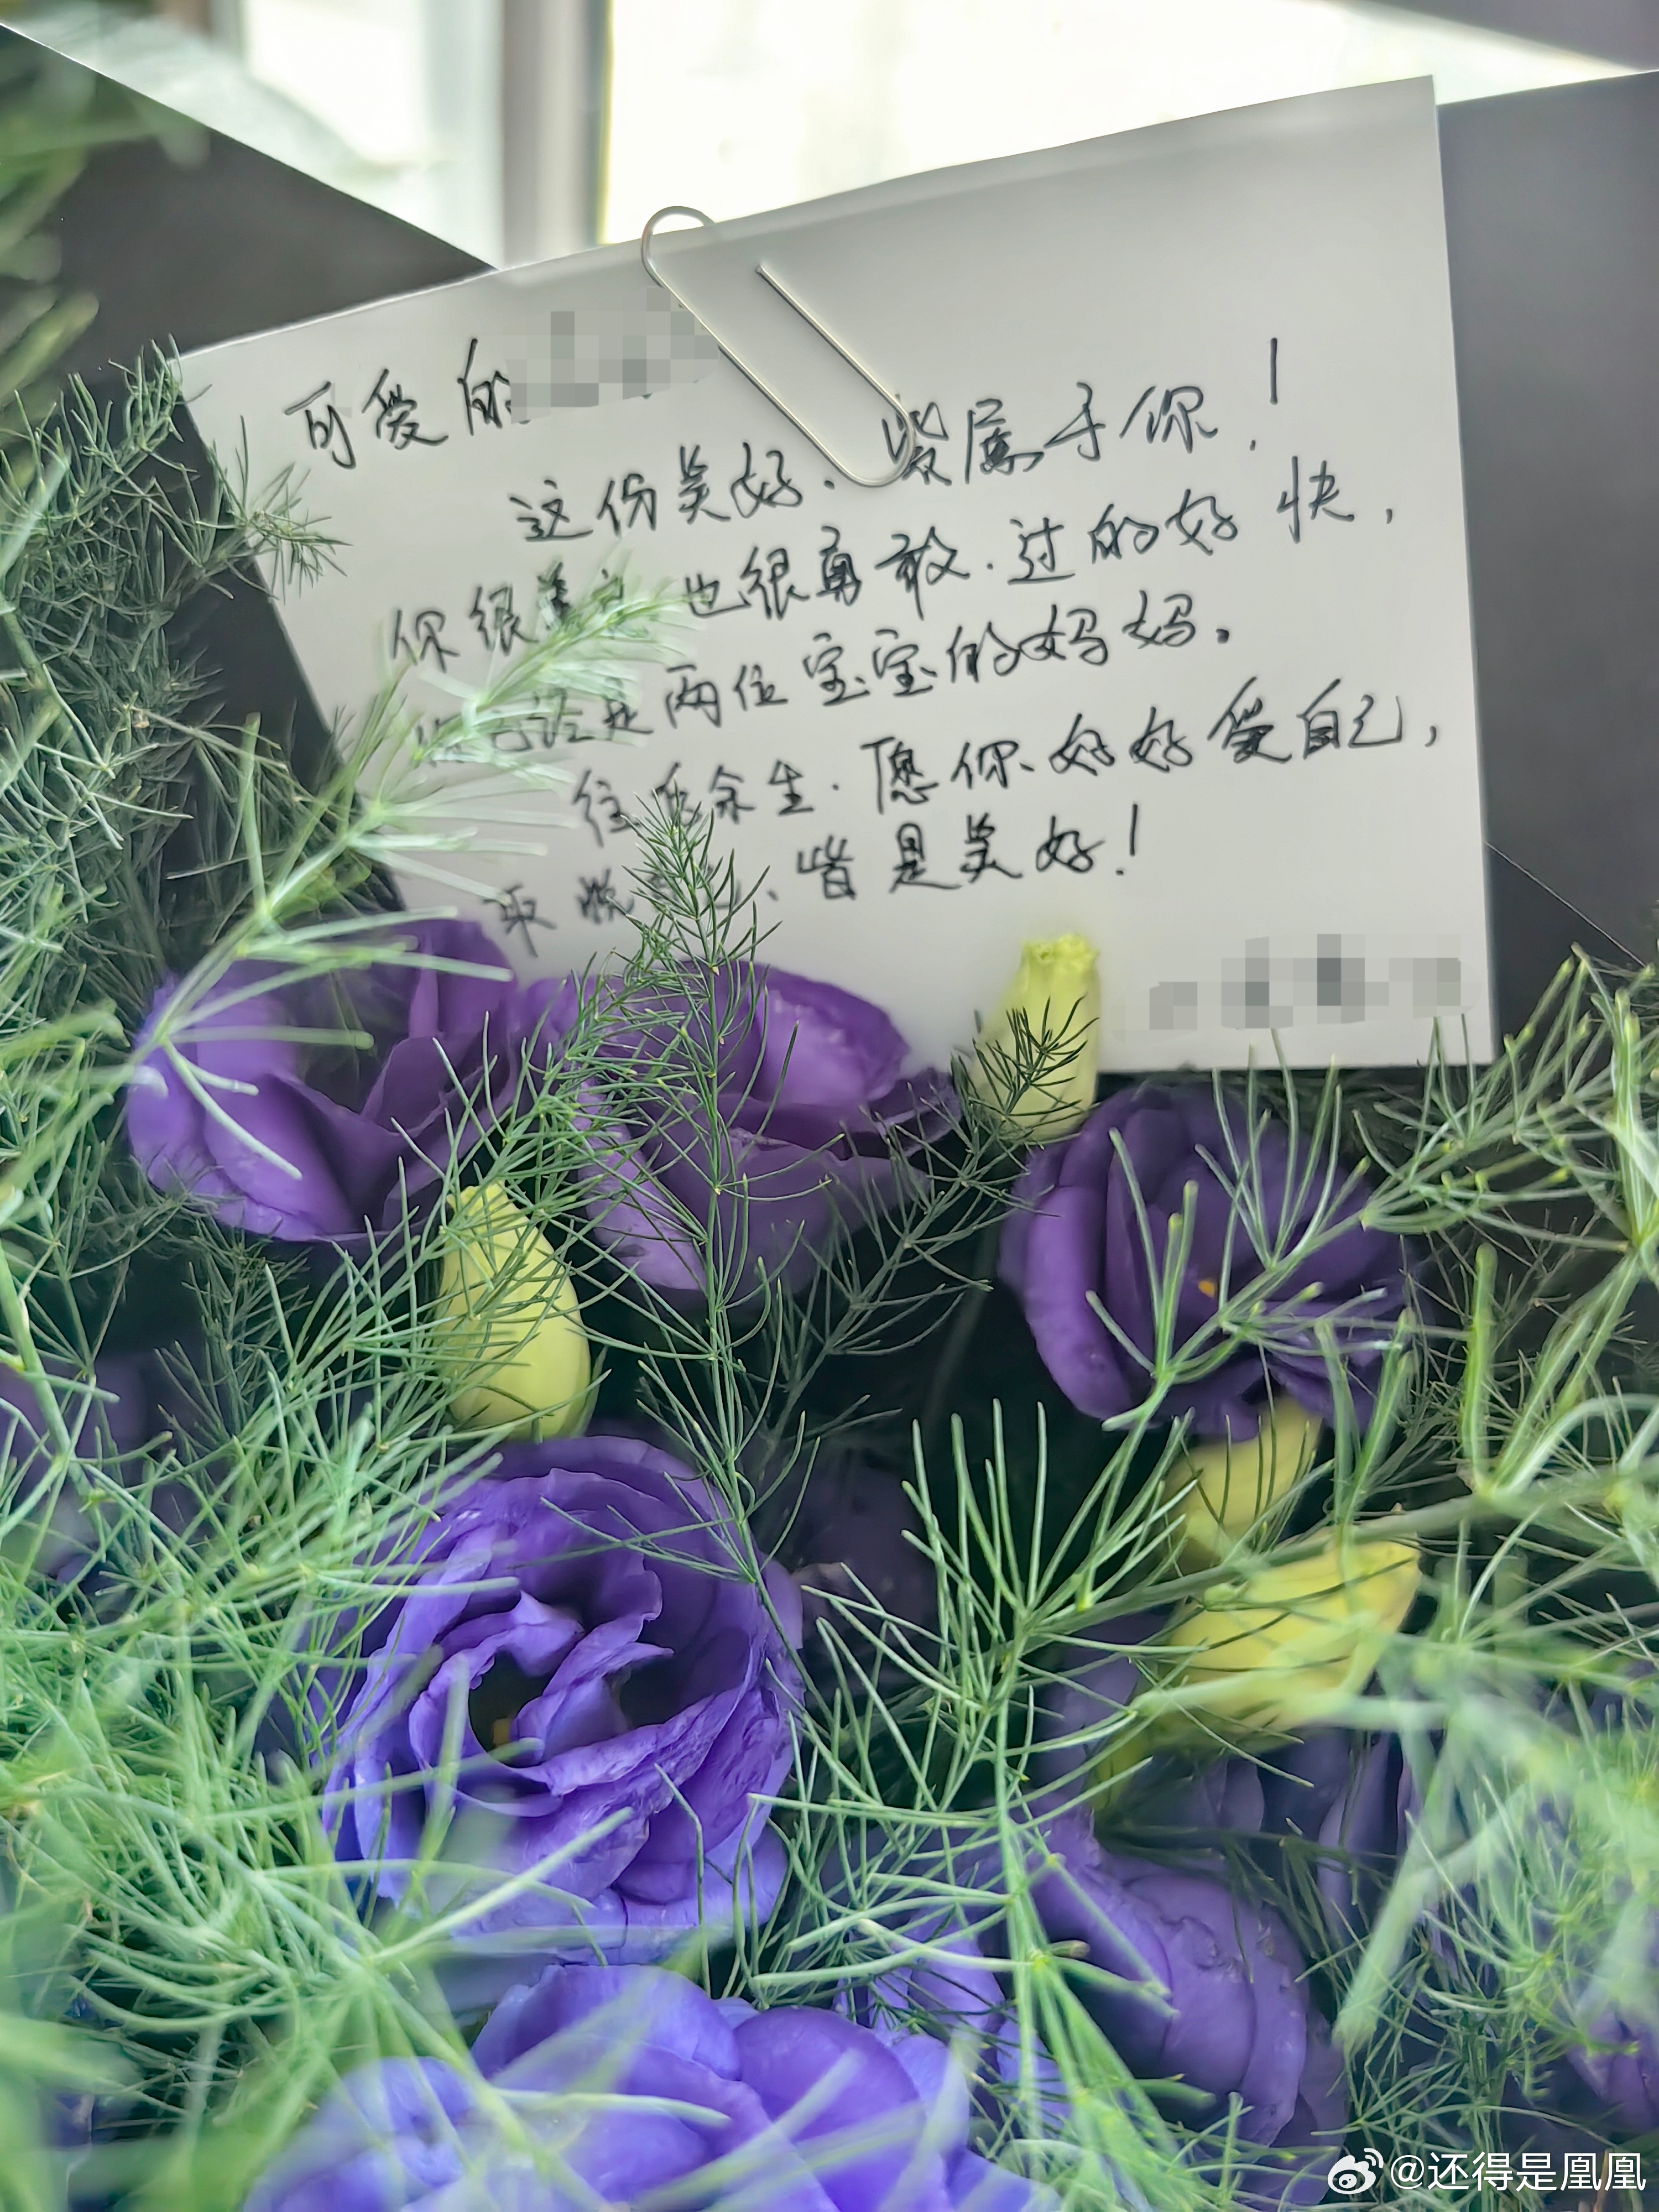 可爱的
这份美好、紫属于你！
你很 也很勇敢.过的好快，
是两位宝宝的妈妈。
往后余生.愿你好好爱自己，
取悦自己、皆是美好！
@还得是凰凰